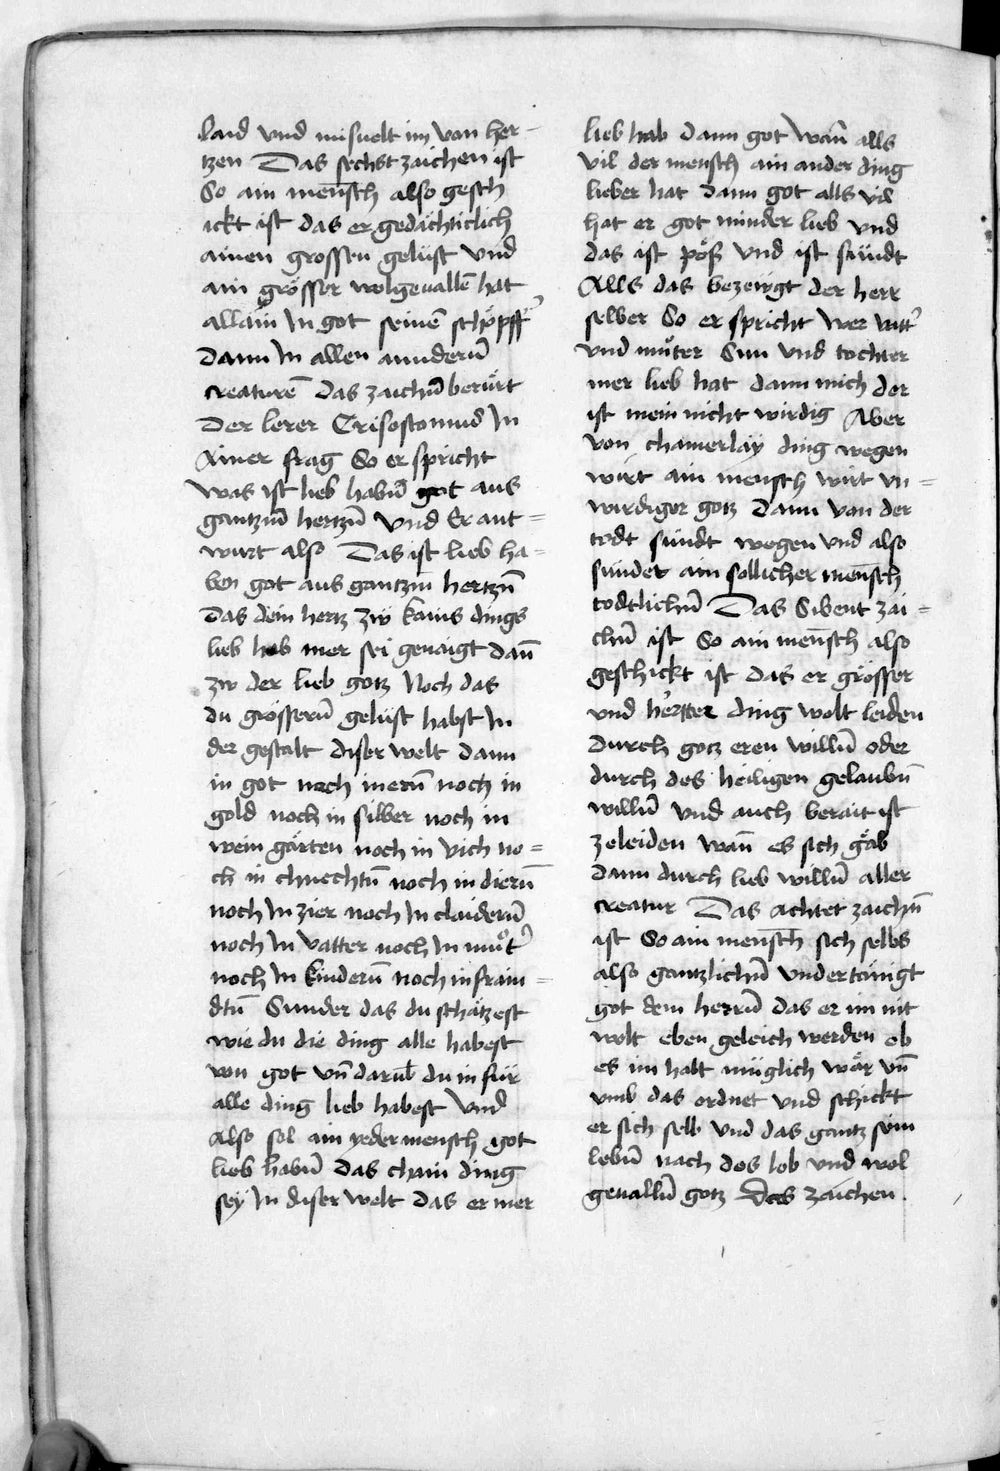 laid vnd misuelt im von her-
tzen Das sechst zaichen ist
So ain mensch also gesch
ickt ist das er gedächticlich
ainen grossen gelüst vnd
ain grösser wolgeuallē hat
allain In got seinē schöpff'
Dann In allen annderū
creaturē das zaichn̄ berürt
Der lerer Crisostomus In
Ainer frag So er spricht
was ist lieb habn̄ got aus
gantzm̄ hertzn̄ vnd Er ant=
wurt also Das ist lieb ha=
ben got aus gantzm̄ hertzn̄
Das dein hertz zw kains dings
lieb hab mer sei genaigt dan̄
zw der lieb gotz Noch das
du grösserū gelüst habst In
der gestalt diser welt dann
in got noch in erū noch in
gold noch in silber noch in
wein gärten noch in vich no=
ch in chnechtn̄ noch in diern̄
noch In zier noch In claidern̄
noch In vatter noch In muͦt'
noch In kindern̄ noch in frain=
dtn̄ Sunder das du schätzest
wie du die ding alle habest
von got vn̄ darub̄ du in für
alle ding lieb habest vnd
Also sol ain yeder mensch got
lieb habn̄ das chain ding
sey In diser welt das er mer
lieb hab dann got wan̄ alls
vil der mensch ain ander ding
lieber hat dann got alls vil
hat er got minder lieb vnd
das ist pöß vnd ist sündt
Alls das bezeügt der herr
selber So er spricht wer vatt'
vnd muͦter Sun vnd tochter
mer lieb hat dann mich der
ist mein nicht wirdig Aber
von chainerlay ding wegen
wirt ain mensch wirt vn=
wirdiger gotz Dann von der
todt sündt wegen vnd also
sündet ain sollicher mensch
todtlichn̄ Das Sibent zai=
chn̄ ist So ain mensch also
geschickt ist das er grösser
vnd hertter ding wolt leiden
durch gotz eren willn̄ oder
durch des heiligen gelaubn̄
willn̄ vnd auch berait ist
zeleiden wan̄ es sich gäb
dann durch lieb willn̄ aller
creatur Das Achtet zaichn̄
ist So ain mensch sich selbs
also gantzlichn̄ vndertänigt
got dem herrn̄ das er im nit
wolt eben geleich werden ob
es im halt müglich wär vn̄
vmb das ordnet vnd schickt
er sich selb vnd das gantz sein
lebn̄ nach des lob vnd wol
geualln̄ gotz Das zaichen